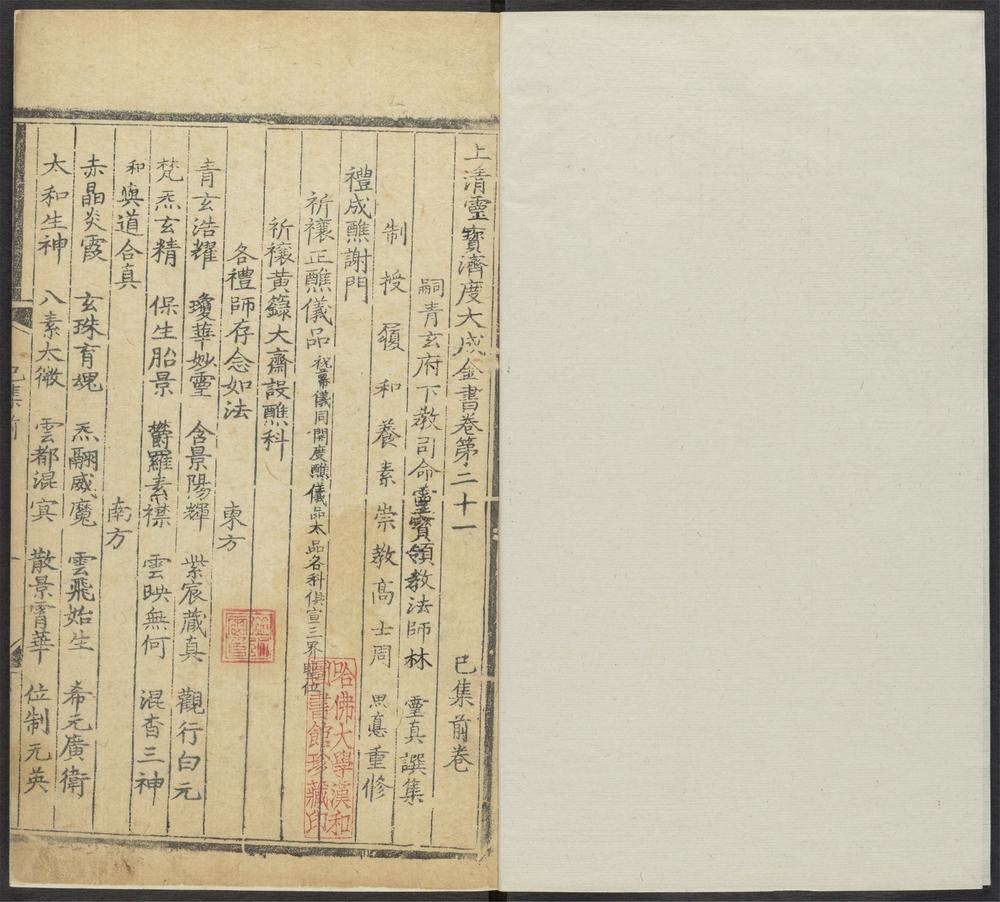 上清靈寶濟度大成金書卷第二十一 巳集前卷
嗣青玄府下教司命靈寶領教法師林 靈真 譔集
制授履和養素崇教高士周 思悳 重修
禮成醮謝門
祈禳正醮儀品 儀同開度醮儀品 品各科俱宣三界
祈禳黃籙大齋設醮科
各禮師存念如法 東方
青玄浩耀 瓊華妙靈 含景陽輝 紫宸藏真 觀行白元
梵炁玄精 保生胎景 鬱羅素襟 雲映無何 混杳三神
和與道合真 南方
赤晶炎霞 玄珠育魂 炁翮威魔 雲飛始生 希元廣衛
太和生神 八素太微 雲都混冥 散景霄華 位制元英
哈佛大學漢和圖書館珍藏印